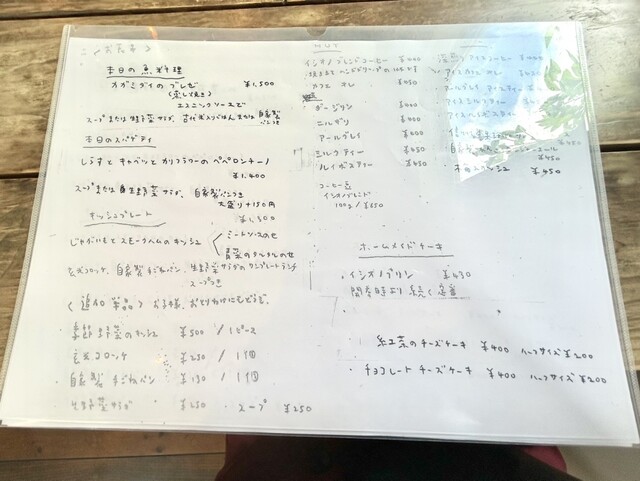 本日の魚料理
オガミダイのブレゼ ¥1,500
(蒸し焼き)
エスニックソースで
スープまたは生野菜サラダ、古代米入りごはんまたは自家製パンつき
本日のスパゲティ
しらすとキャベツとカリフラワーのペペロンチーノ
¥1,400
スープまたは生野菜サラダ、自家製パンつき
大盛り+150円
キッシュプレート
¥1,500
じゃがいもとスモークハムのキッシュ
ミートソースのせ
青菜のタルタルのせ
玄米コロッケ、自家製手ごねパン、生野菜サラダのワンプレートランチ
スープつき
〈追加単品〉お子様、おとりわけにもどうぞ。
季節野菜のキッシュ ¥500 / 1ピース
玄米コロッケ ¥250 / 1個
自家製手ごねパン ¥130 / 1個
生野菜サラダ ¥250 ・スープ ¥250
HOT
イシオノブレンドコーヒー ¥400
カフェオレ ¥450
ダージリン ¥400
ニルギリ ¥400
アールグレイ ¥400
ミルクティー ¥450
ルイボスティー ¥450
コーヒー豆
イシオノブレンド
100g / ¥650
アイスコーヒー
アイスカフェオレ
アールグレイアイスティー
アイスミルクティー
アイスルイボスティー
¥450
¥450
ホームメイドケーキ
・イシオノプリン ¥430
開店時より続く定番
・紅茶のチーズケーキ ¥400 ハーフサイズ¥200
・チョコレートチーズケーキ ¥400 ハーフサイズ¥200